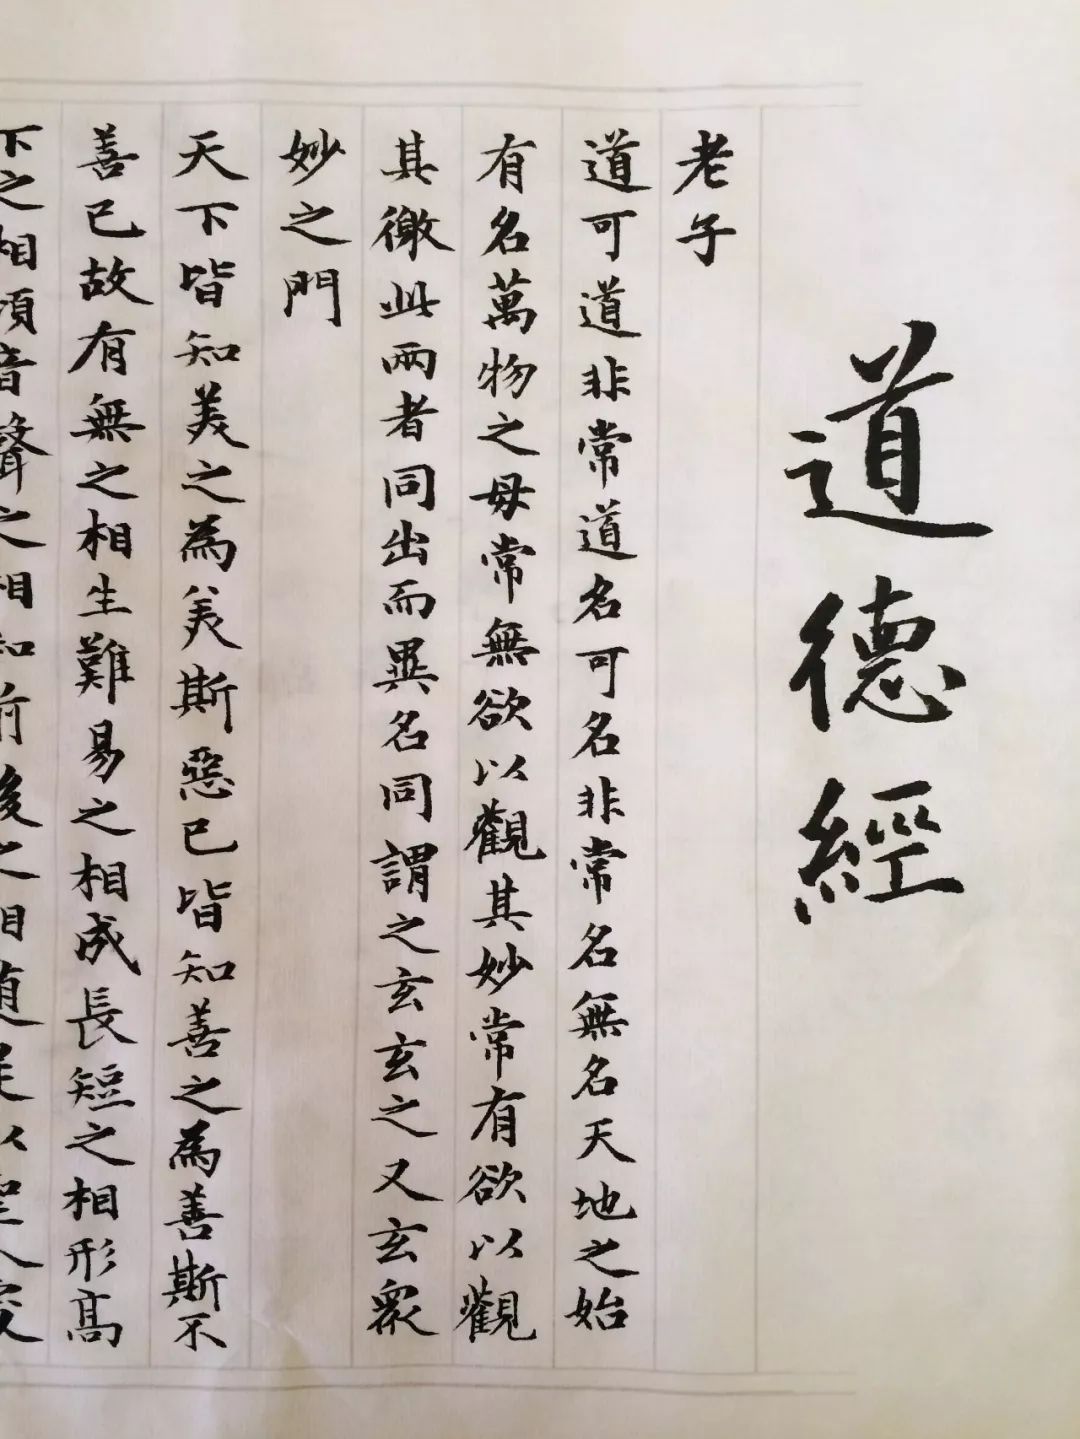 道德經
老子
道可道非常道名可名非常名無名天地之始
有名萬物之母常無欲以觀其妙常有欲以觀
其徼此兩者同出而異名同謂之玄玄之又玄衆
妙之門
天下皆知美之為美斯惡已皆知善之為善斯不
善已故有無之相生難易之相成長短之相形高
下之相傾音聲之相和前後之相隨是以聖人處